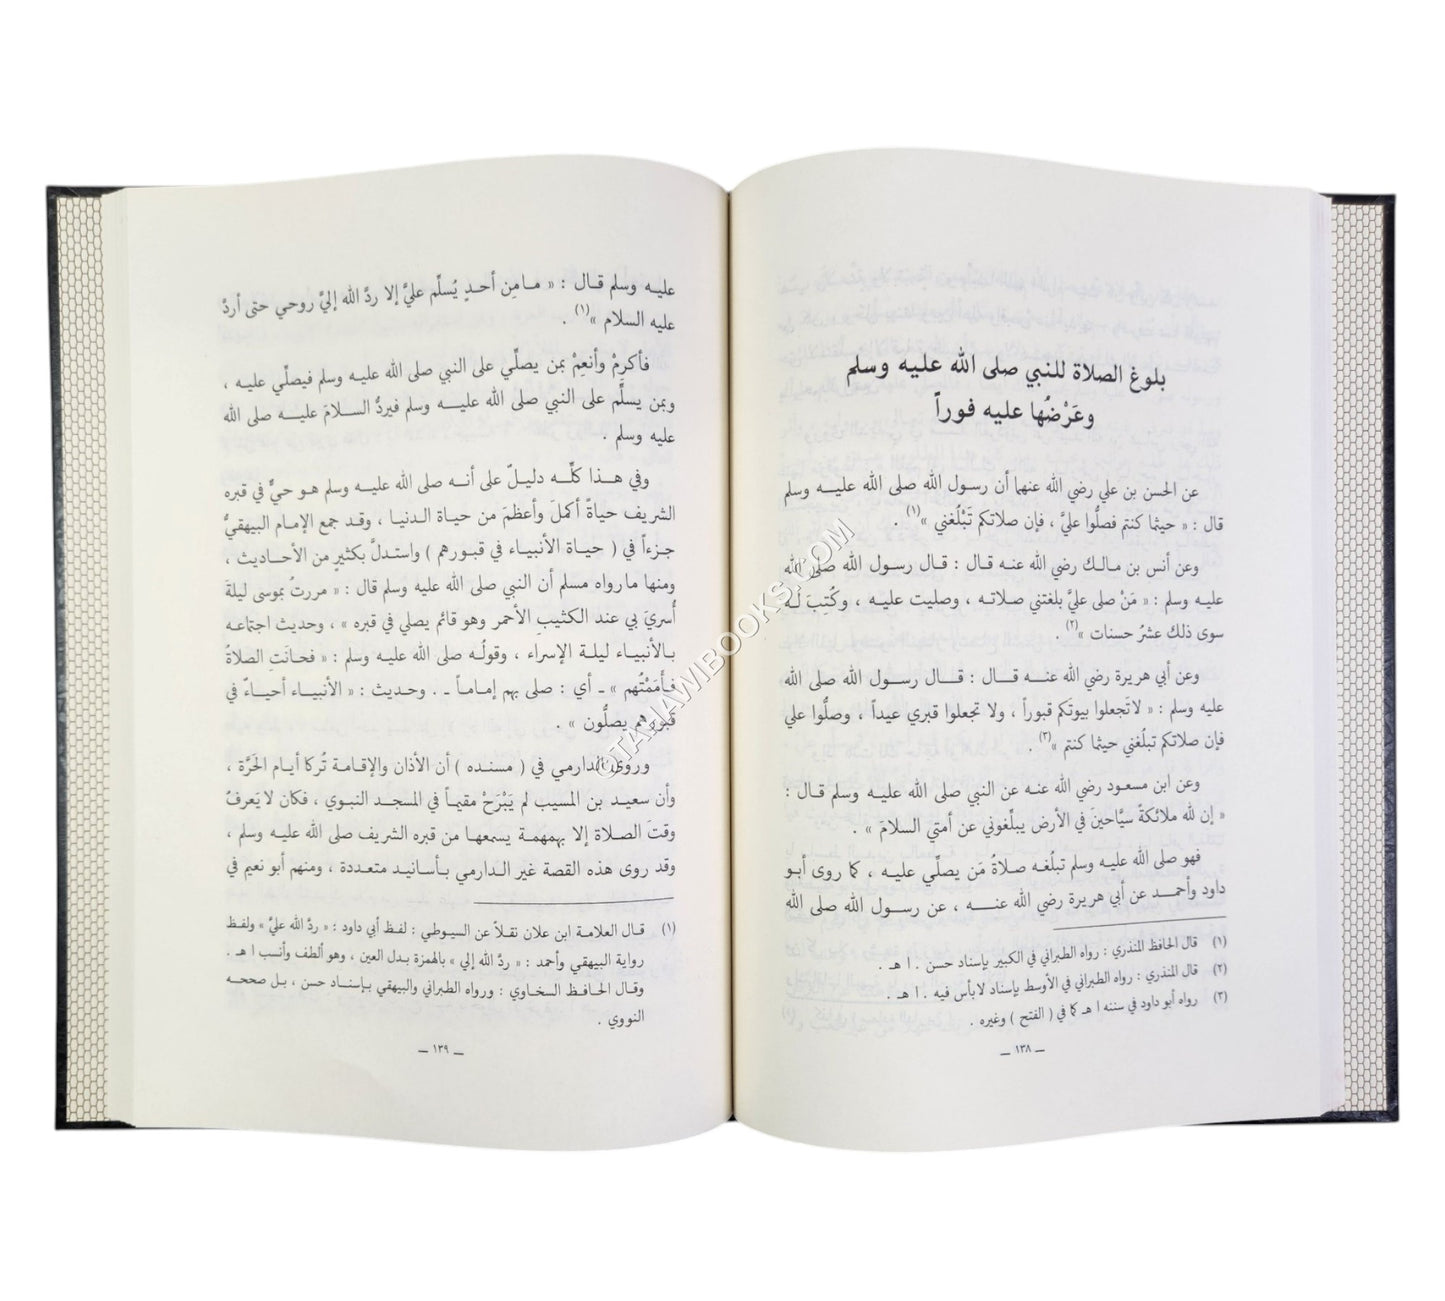 بلوغ الصلاة للنبي صلى الله عليه وسلم
وعَرْضُها عليه فوراً
عن الحسن بن علي رضي الله عنهما أن رسول الله صلى الله عليه وسلم
قال : « حيثما كنتم فصلُّوا عليَّ ، فإن صلاتكم تَبْلُغني »(١) .
وعن أنس بن مالك رضي الله عنه قال : قال رسول الله صلى الله
عليه وسلم : « مَنْ صلى عليَّ بلغتني صلاته ، وصليت عليه ، وكُتِبَ لَه
سوى ذلك عشرُ حسنات »(٢) .
وعن أبي هريرة رضي الله عنه قال : قال رسول الله صلى الله
عليه وسلم : « لاتجعلوا بيوتكم قبوراً ، ولا تجعلوا قبري عيداً ، وصلُّوا علي
فإن صلاتكم تبلُغني حيثما كنتم »(٣) .
وعن ابن مسعود رضي الله عنه عن النبي صلى الله عليه وسلم قال :
« إن لله ملائكةً سيَّاحينَ في الأرض يبلِّغوني عن أمتي السلامَ » .
فهو صلى الله عليه وسلم تبلُغه صلاةُ مَن يصلِّي عليه ، كما روى أبو
داود وأحمد عن أبي هريرة رضي الله عنه ، عن رسول الله صلى الله
(١) قال الحافظ المنذري : رواه الطبراني في الكبير بإسناد حسن . ا هـ .
(٢) قال المنذري : رواه الطبراني في الأوسط بإسناد لابأس فيه . ا هـ .
(٣) رواه أبو داود في سننه ا هـ كما في ( الفتح ) وغيره .
ــ ١٣٨ ــ
عليه وسلم قال : « مامِن أحدٍ يُسلِّم عليَّ إلا ردَّ الله إليَّ روحي حتى أردَّ
عليه السلام »(١) .
فأكرِمْ وأنعِمْ بمن يصلِّي على النبي صلى الله عليه وسلم فيصلِّي عليه ،
وبمن يسلِّم على النبي صلى الله عليه وسلم فيردُّ السلامَ عليه صلى الله
عليه وسلم .
وفي هذا كلِّه دليلّ على أنه صلى الله عليه وسلم هو حيٌّ في قبره
الشريف حياةً أكملَ وأعظمَ من حياة الدنيا ، وقد جمع الإمام البيهقيُّ
جزءاً في ( حياة الأنبياء في قبورهم ) واستدلَّ بكثيرٍ من الأحاديث ،
ومنها مارواه مسلم أن النبي صلى الله عليه وسلم قال : « مررتُ بموسى ليلةَ
أُسريَ بي عند الكثيبِ الأحمر وهو قائم يصلي في قبره » ، وحديث اجتماعه
بالأنبياء ليلة الإسراء ، وقولُه صلى الله عليه وسلم : « فحانَتِ الصلاةُ
فأمَمْتُهم » ـ أي : صلى بهم إماماً ـ . وحديث : « الأنبياء أحياءٌ في
قبورهم يصلُّون » .
وروى الدارمي في ( مسنده ) أن الأذان والإقامة تُركا أيام الحَرَّة ،
وأن سعيد بن المسيب لم يَبْرَحْ مقيماً في المسجد النبوي ، فكان لايَعرفُ
وقتَ الصلاة إلا بهمهمة يسمعها من قبره الشريف صلى الله عليه وسلم ،
وقد روى هذه القصة غير الدارمي بأسانيد متعددة ، ومنهم أبو نعيم في
(١) قال العلامة ابن علان نقلاً عن السيوطي : لفظ أبي داود : « ردَّ الله عليَّ » ولفظ
رواية البيهقي وأحمد : « ردَّ الله إلي » بالهمزة بدل العين ، وهو ألطف وأنسب ا هـ .
وقال الحافظ السخاوي : ورواه الطبراني والبيهقي بإسناد حسن ، بل صححه
النووي .
ــ ١٣٩ ــ
©TANAWIBOOKS.COM